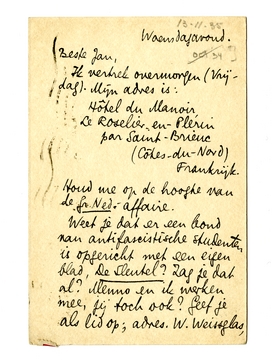 13-11-35
Woensdagavond.
Oct. 34
Beste Jan,
Ik vertrek overmorgen (Vrij-
dag). Mijn adres is:
Hôtel du Manoir
Le Roselier-en-Plérin
par Saint-Brieuc
(Côtes-du-Nord)
Frankrijk.
Houd me op de hoogte van
de Gr. Ned.-affaire.
Weet je dat er een bond
van antifascistische studenten
is opgericht met een eigen
blad, De Sleutel? Zag je dat
al? Menno en ik werken
mee, jij toch ook? Geef je
als lid op; adres. W. Weissglas,